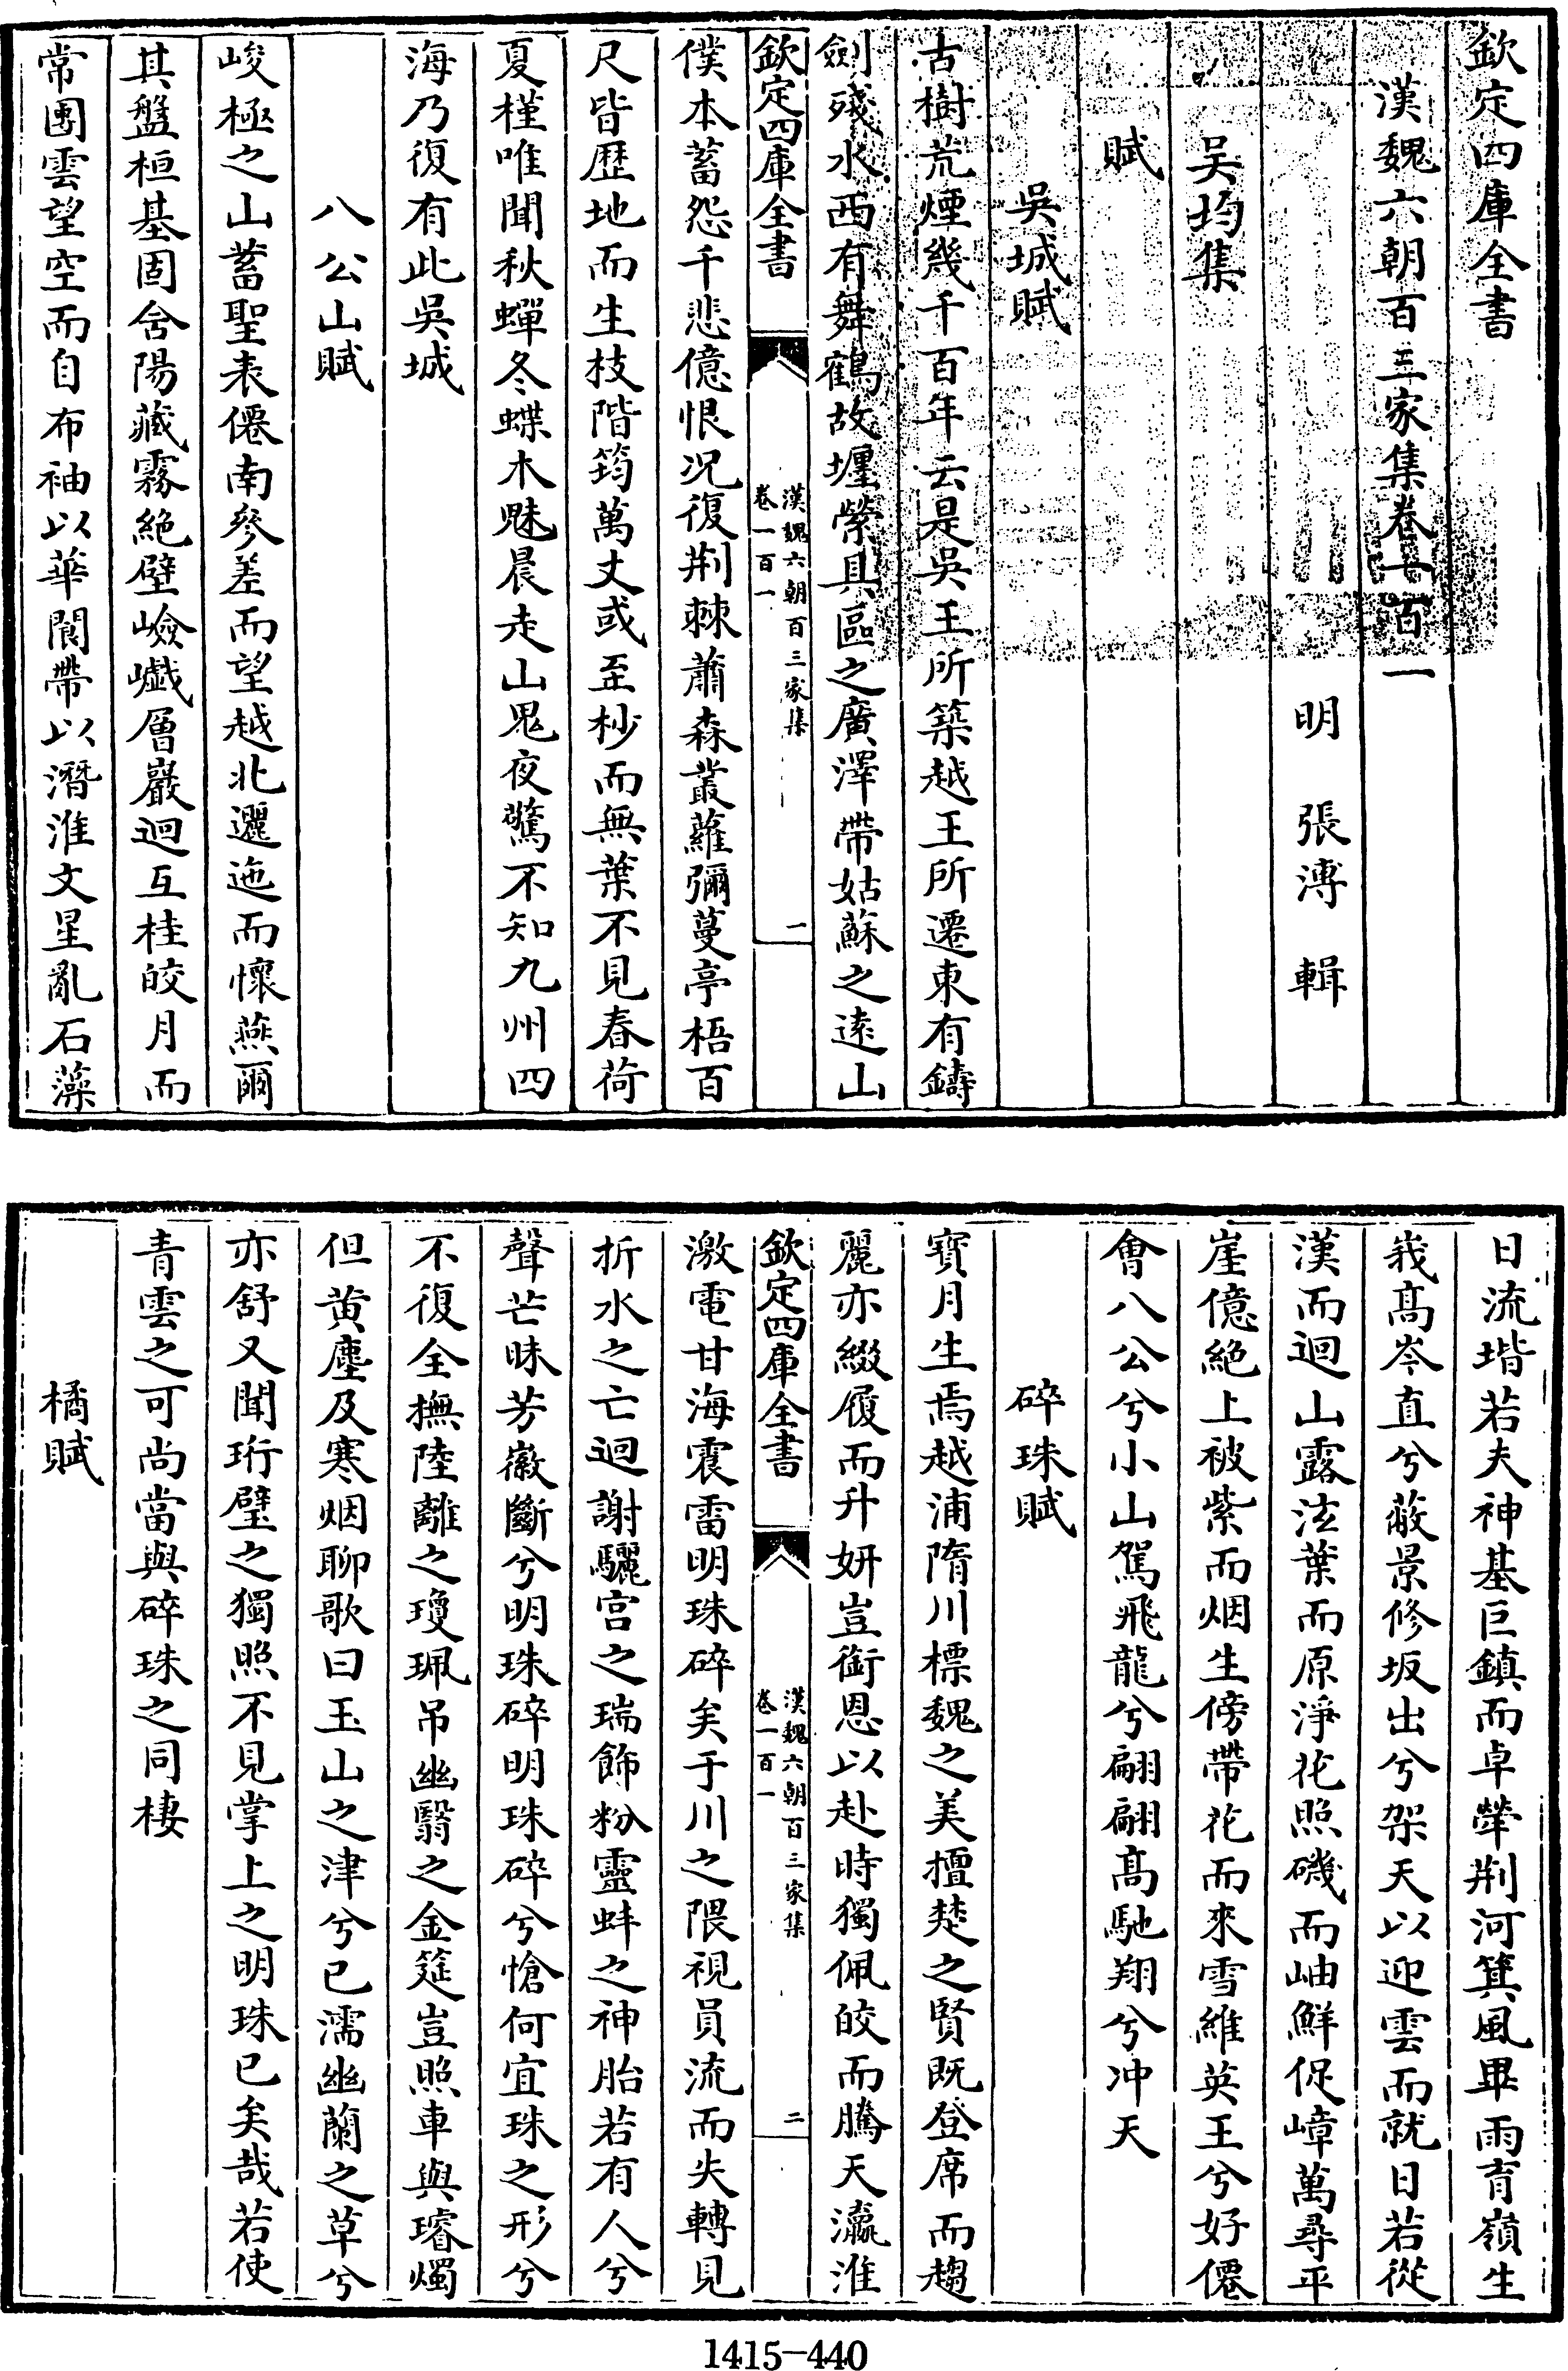 欽定四庫全書
漢魏六朝百三家集卷一百一
明 張溥 輯
吳均集
賦
吳城賦
古樹荒煙幾千百年云是吳王所築越王所遷東有鑄
劍殘水西有舞鶴故壥縈具區之廣澤帶姑蘇之遠山
欽定四庫全書
漢魏六朝百三家集
卷一百一
一
僕本蓄怨千悲億恨况復荆棘蕭森叢蘿彌蔓亭梧百
尺皆歴地而生枝階筠萬丈或至杪而無葉不見春荷
夏槿唯聞秋蟬冬蝶木魅晨走山鬼夜驚不知九州四
海乃復有此吳城
八公山賦
峻極之山蓄聖表僊南參差而望越北邐迤而懷燕爾
其盤桓基固含陽藏霧絶壁嶮巇層巖迴互桂皎月而
常團雲望空而自布袖以華閬帶以潛淮文星亂石藻
日流堦若夫神基巨鎮而卓犖荆河箕風畢雨育嶺生
峩髙岑直兮蔽景修坂出兮架天以迎雲而就日若從
漢而迴山露泫葉而原淨花照磯而岫鮮促嶂萬尋平
崖億絶上被紫而烟生傍帶花而來雪維英王兮好僊
會八公兮小山駕飛龍兮翩翩髙馳翔兮冲天
碎珠賦
寳月生焉越浦隋川標魏之美擅楚之賢既登席而趨
麗亦綴履而升妍豈銜恩以赴時獨佩皎而騰天瀛淮
欽定四庫全書
漢魏六朝百三家集
卷一百一
二
激電甘海震雷明珠碎矣于川之隈視員流而失轉見
折水之亡迴謝驪宫之瑞飾粉靈蚌之神胎若有人兮
聲芒昧芳徽斷兮明珠碎明珠碎兮愴何宜珠之形兮
不復全撫陸離之瓊珮吊幽翳之金筵豈照車與璿燭
但黄塵及寒烟聊歌曰玉山之津兮已濡幽蘭之草兮
亦舒又聞珩璧之獨照不見掌上之明珠已矣哉若使
青雲之可尚當與碎珠之同棲
橘賦
1415-440